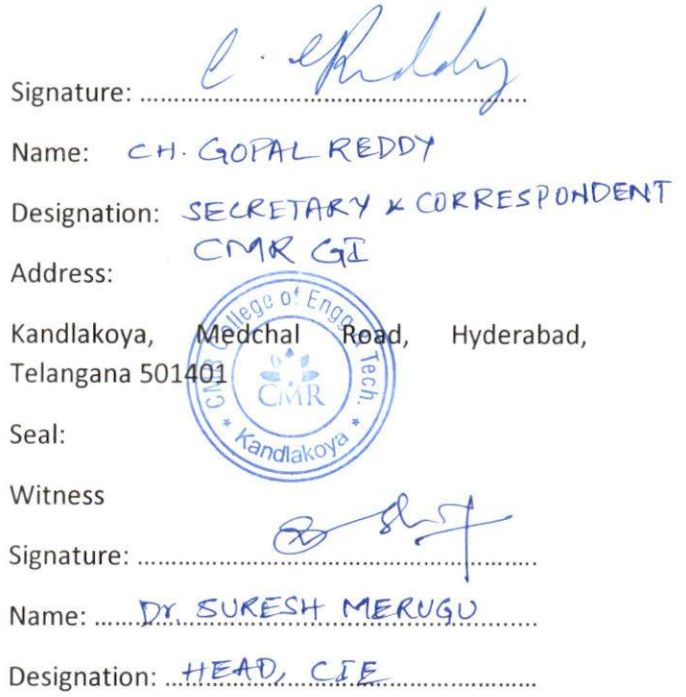 Signature: ........................................................
C. G Reddy
Name: CH. GOPAL REDDY
Designation: SECRETARY & CORRESPONDENT
CMR GI
Address:
Kandlakoya, Medchal Road, Hyderabad,
Telangana 501401
CMR College of Engg. & Tech.
CMR
* Kandlakoya *
Seal:
Witness
Signature: ........................................................
Name: Dr. SURESH MERUGU
Designation: HEAD, CIE